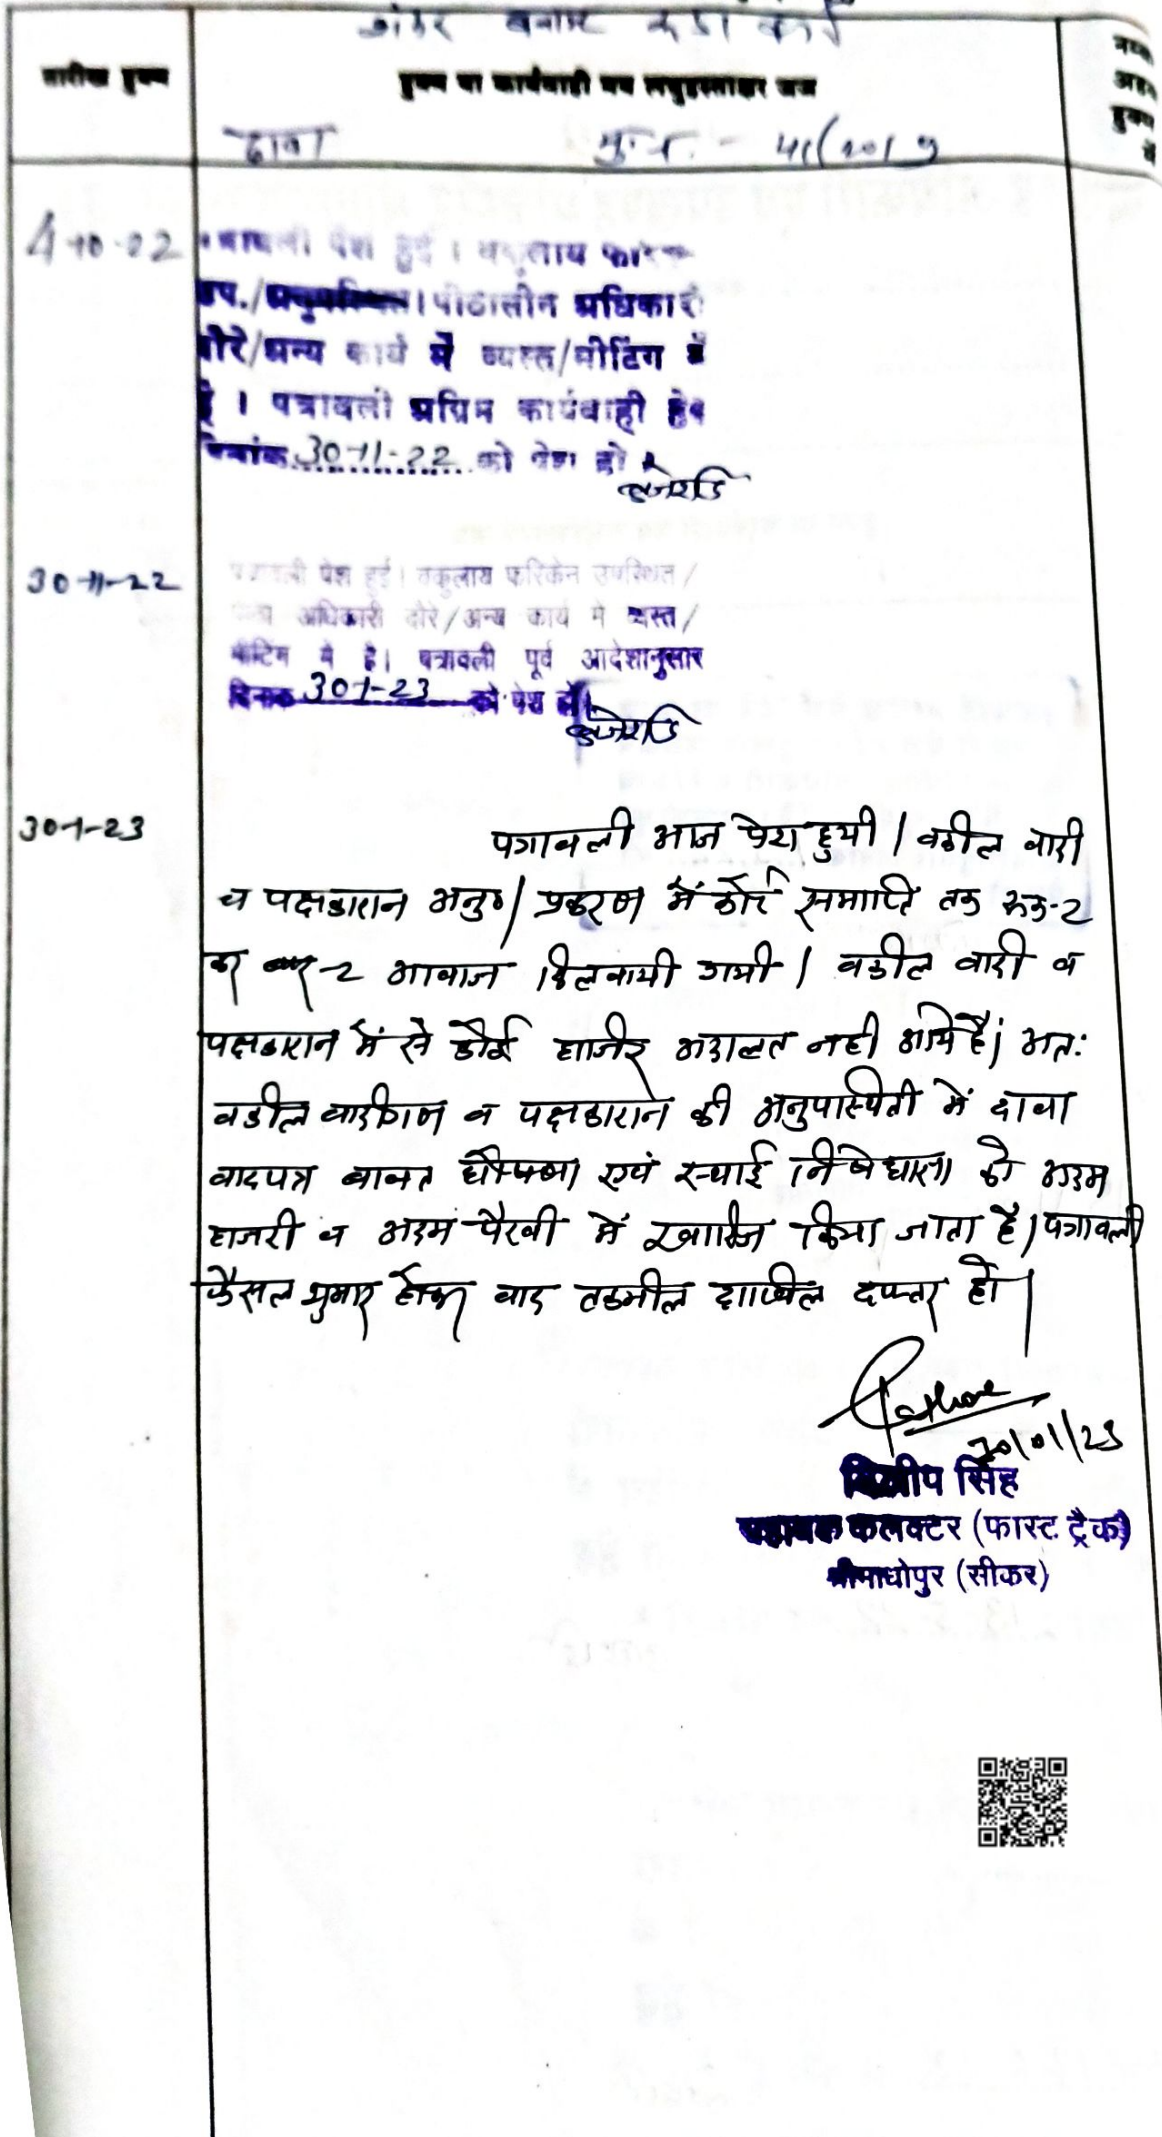 बनाम
तारीख हुक्म
हुक्म या कार्यवाही मय लघुहस्ताक्षर जज
दावा मु.न. - 41/2019
4-10-22
पेश हुई । वकुलाय
उप./अनुपस्थित। पीठासीन अधिकारी
दौरे/अन्य कार्य में व्यस्त/मीटिंग में
है । पत्रावली अग्रिम कार्यवाही हेतु
दिनांक 30-11-22 को पेश हो ।
30-11-22
पत्रावली पेश हुई। वकुलाय फरिकेन उपस्थित/
अधिकारी दौरे/अन्य कार्य मे व्यस्त/
मीटिंग मे है। पत्रावली पूर्व आदेशानुसार
दिनांक 30-1-23 को पेश हो।
30-1-23
पत्रावली आज पेश हुयी । वकील वादी
व पक्षकारान अनु० । प्रकरण में कोर्ट समाप्ति तक रूक-2
कर 2 आवाज दिलवायी गयी । वकील वादी व
पक्षकारान में से कोई हाजिर अदालत नही आये हैं। अतः
वकील वादीगण व पक्षकारान की अनुपस्थिती में दावा
वादपत्र बाबत घोषणा एवं स्थाई निषेधाज्ञा को अदम
हाजरी व अदम पैरवी में खारिज किया जाता है। पत्रावली
फैसल शुमार होकर बाद तकमील दाखिल दफ्तर हो ।
30/01/23
दिलीप सिंह
सहायक कलक्टर (फास्ट ट्रैक)
श्रीमाधोपुर (सीकर)